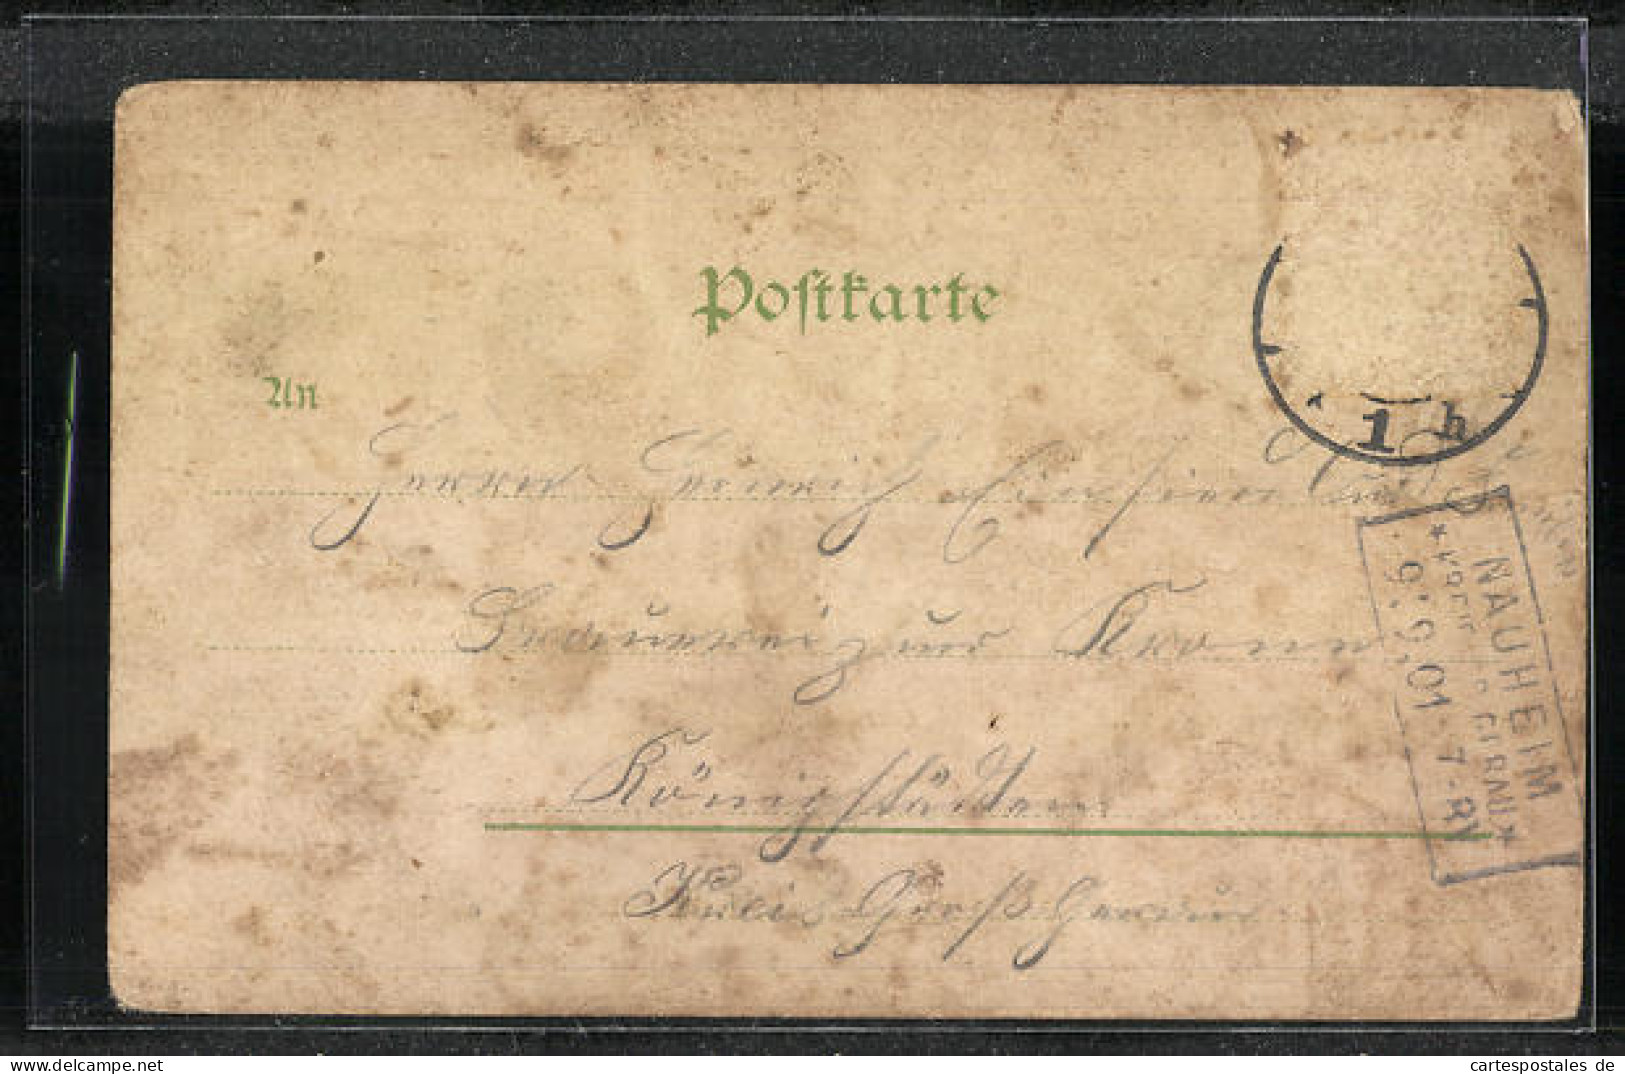 Postkarte
An
Herrn Heinrich
Brauerei zur Krone
Königstädten
Kreis Groß Gerau
1 h
NAUHEIM
9.9.01 7-8V
cartespostales de